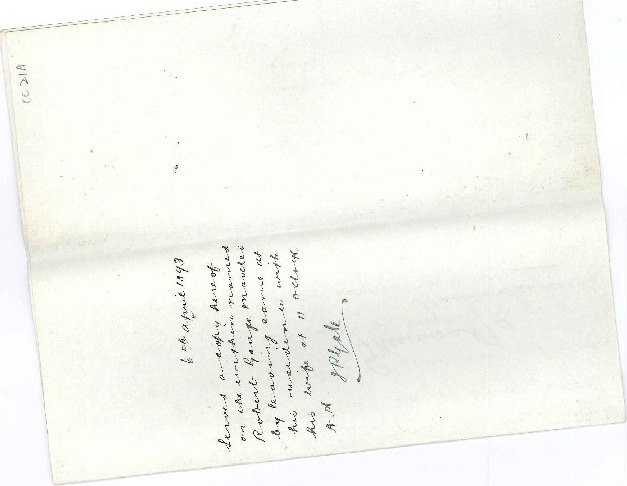 CC 21A
6th April 1893
Served a copy hereof
on the within named
Robert George
by leaving same at
his residence with
his wife at 11 oclock